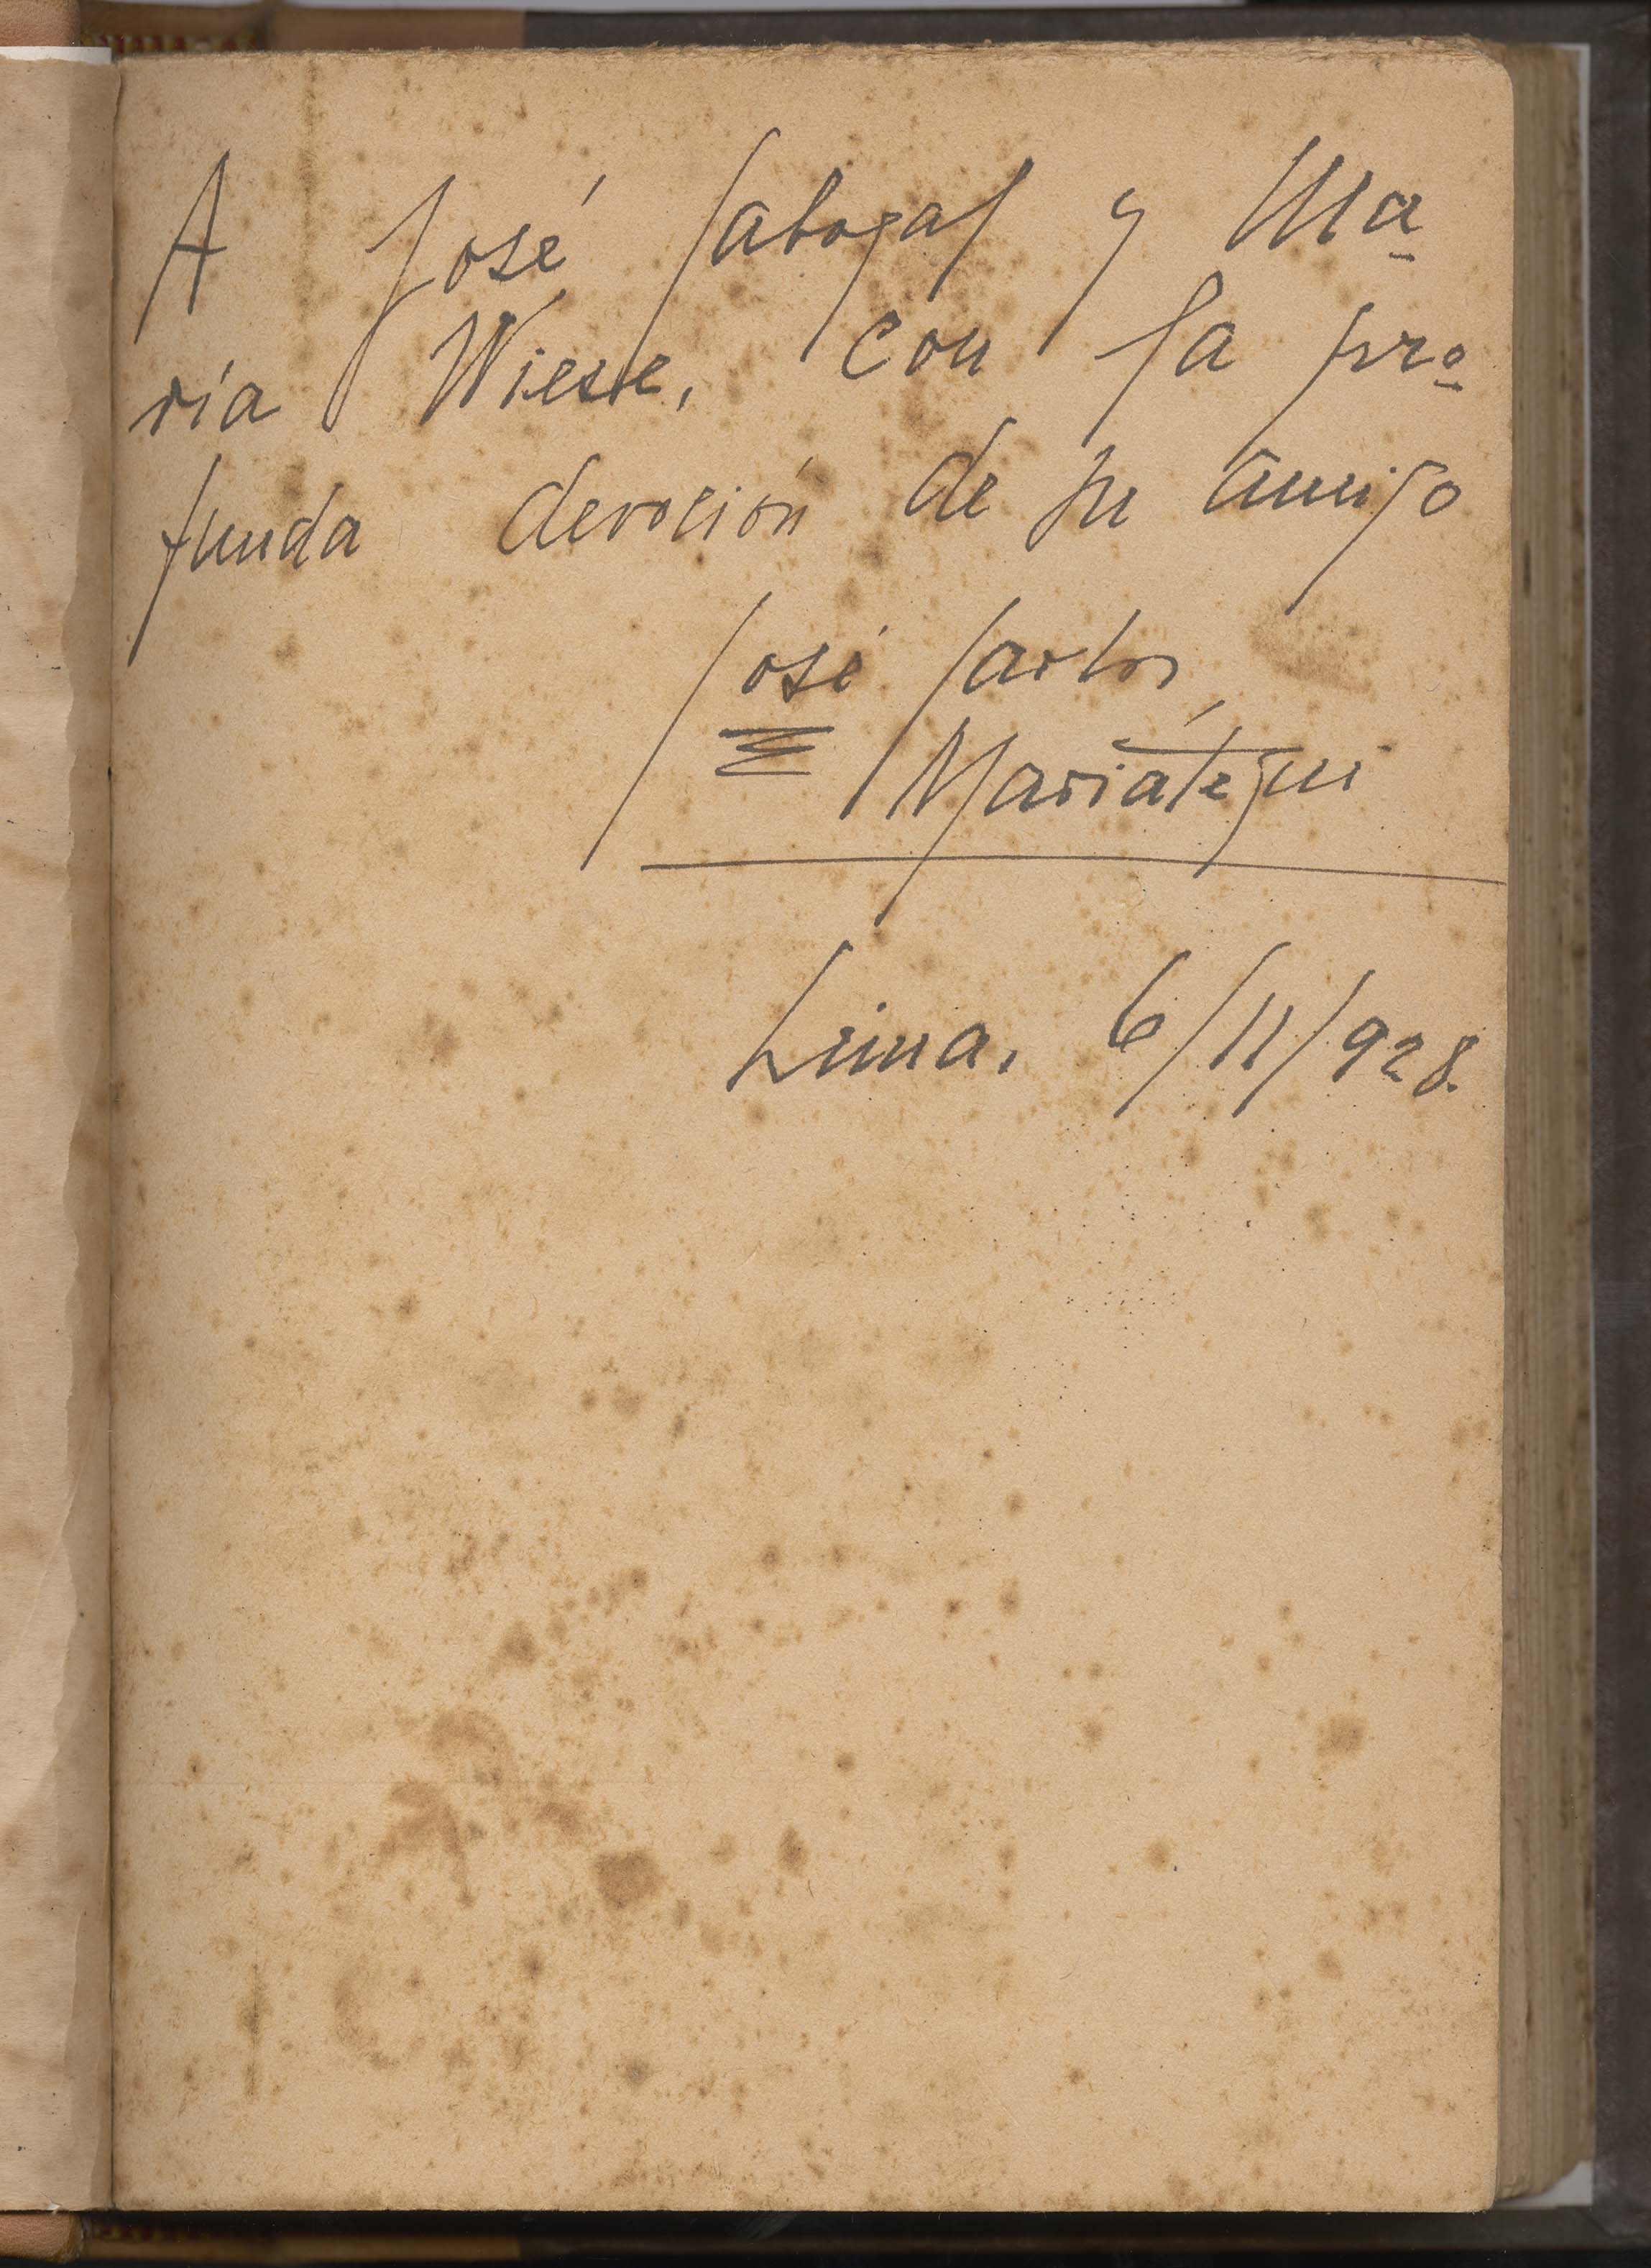 A José Sabogal y Ma-
ría Wiesse, con la pro-
funda devoción de su amigo
José Carlos
Mariátegui
Lima, 6/11/928.